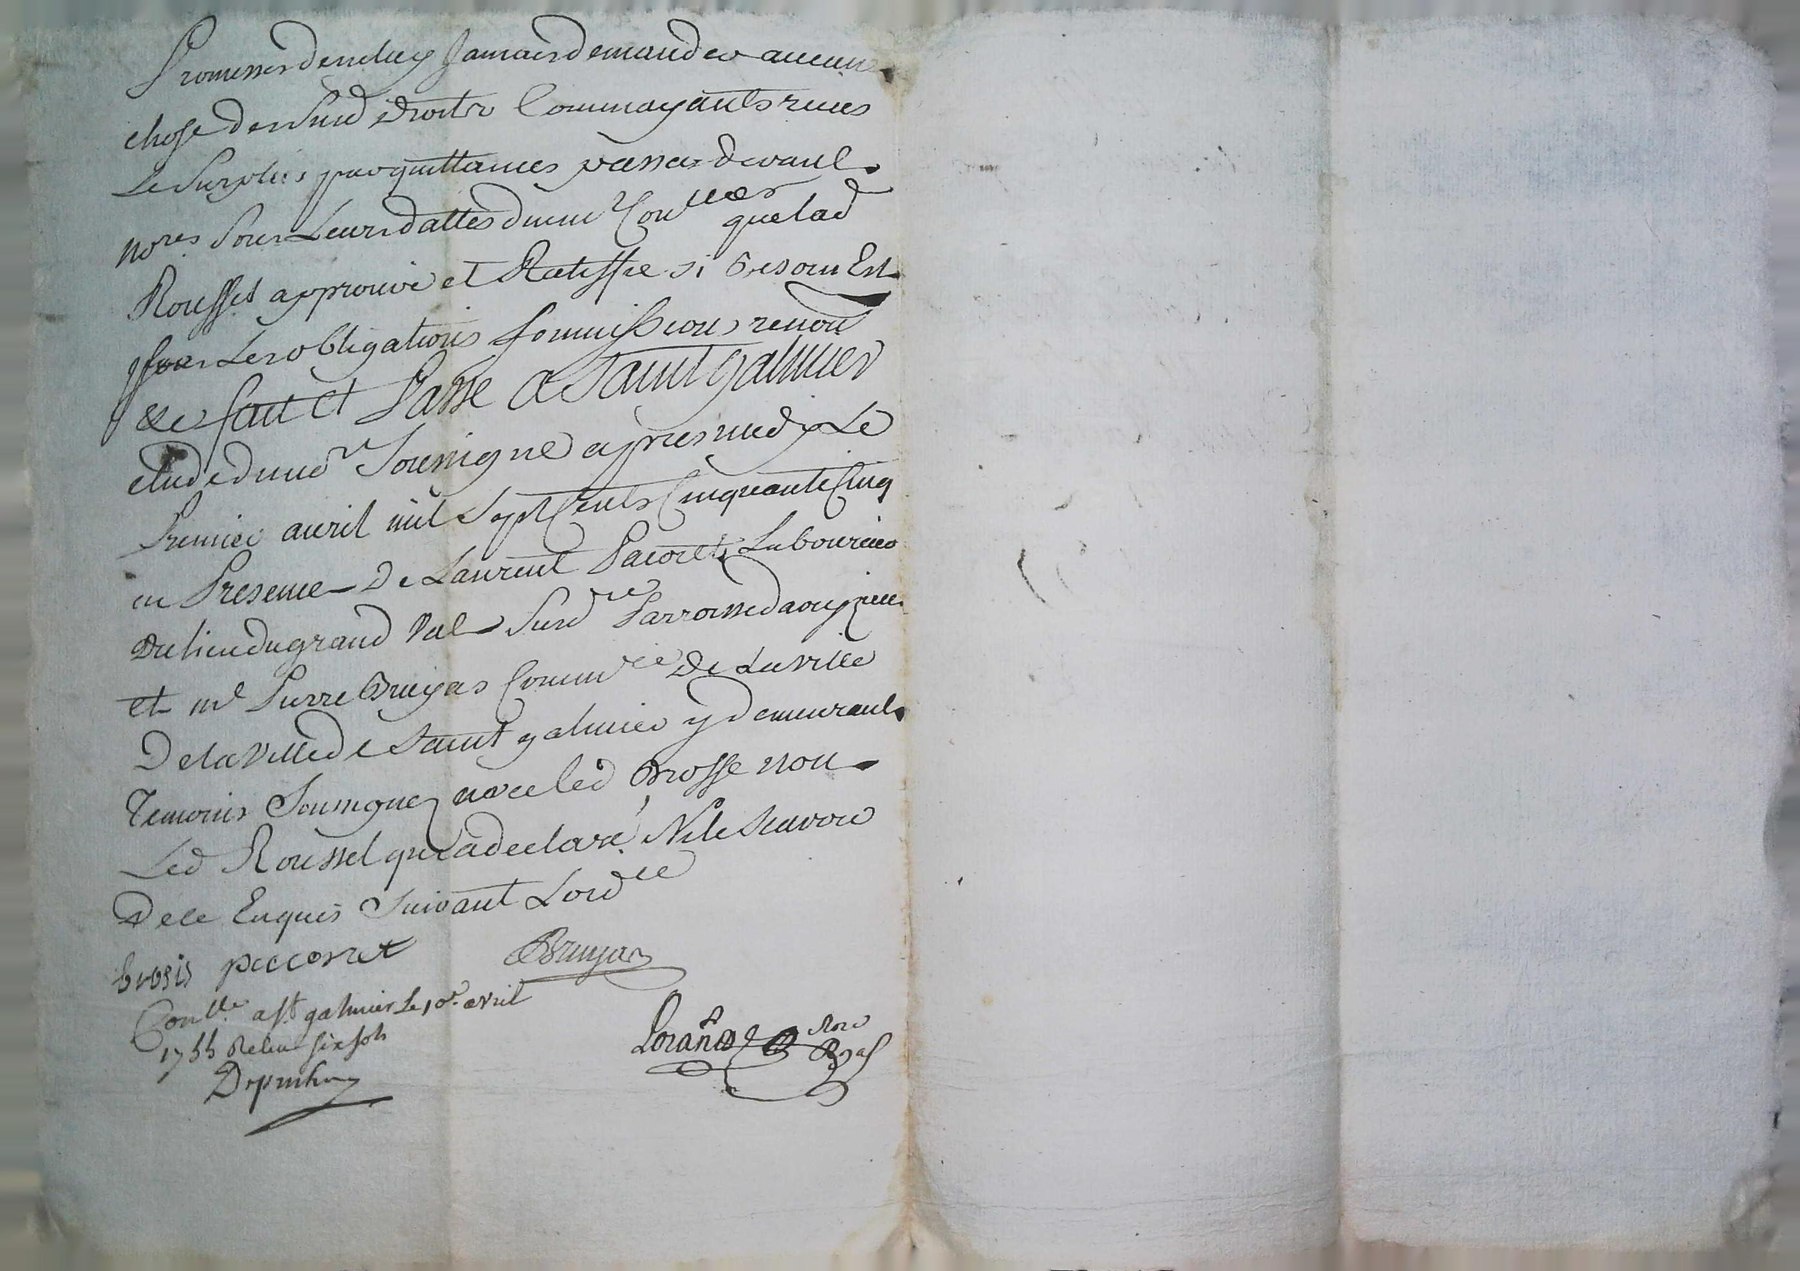 Promesses den luy Jamais demander aucune
chose desSusd droits Comm ayants reçus
Le Surplus par quittances passés devant
nores Sous Leurs dattes dument Conllées quelad
Rousset approuve et Ratiffie si besoin Est
pour Les obligations soumissions renon
&c fait et Passé a Saint galmier
etude dud nore Soussigné apres midy Le
Premier avril mil Sept Cents Cinquante Cinq
en Presence De Laurent Pacoret Laboureur
du lieu du grand Val Susd Parroisse
et me Pierre Bruyas Commre De La ville
De la Ville de Saint galmier y demeurants
Temoins Soussignez avec led Brosse non
Led Roussel qui a declaré Ne le Scavoir
De ce Enquis Suivant Lordce
brosis peccoret Bruyas
Conllé a st galmier Le 10e avril
1755 Relu six sols
nore Ral